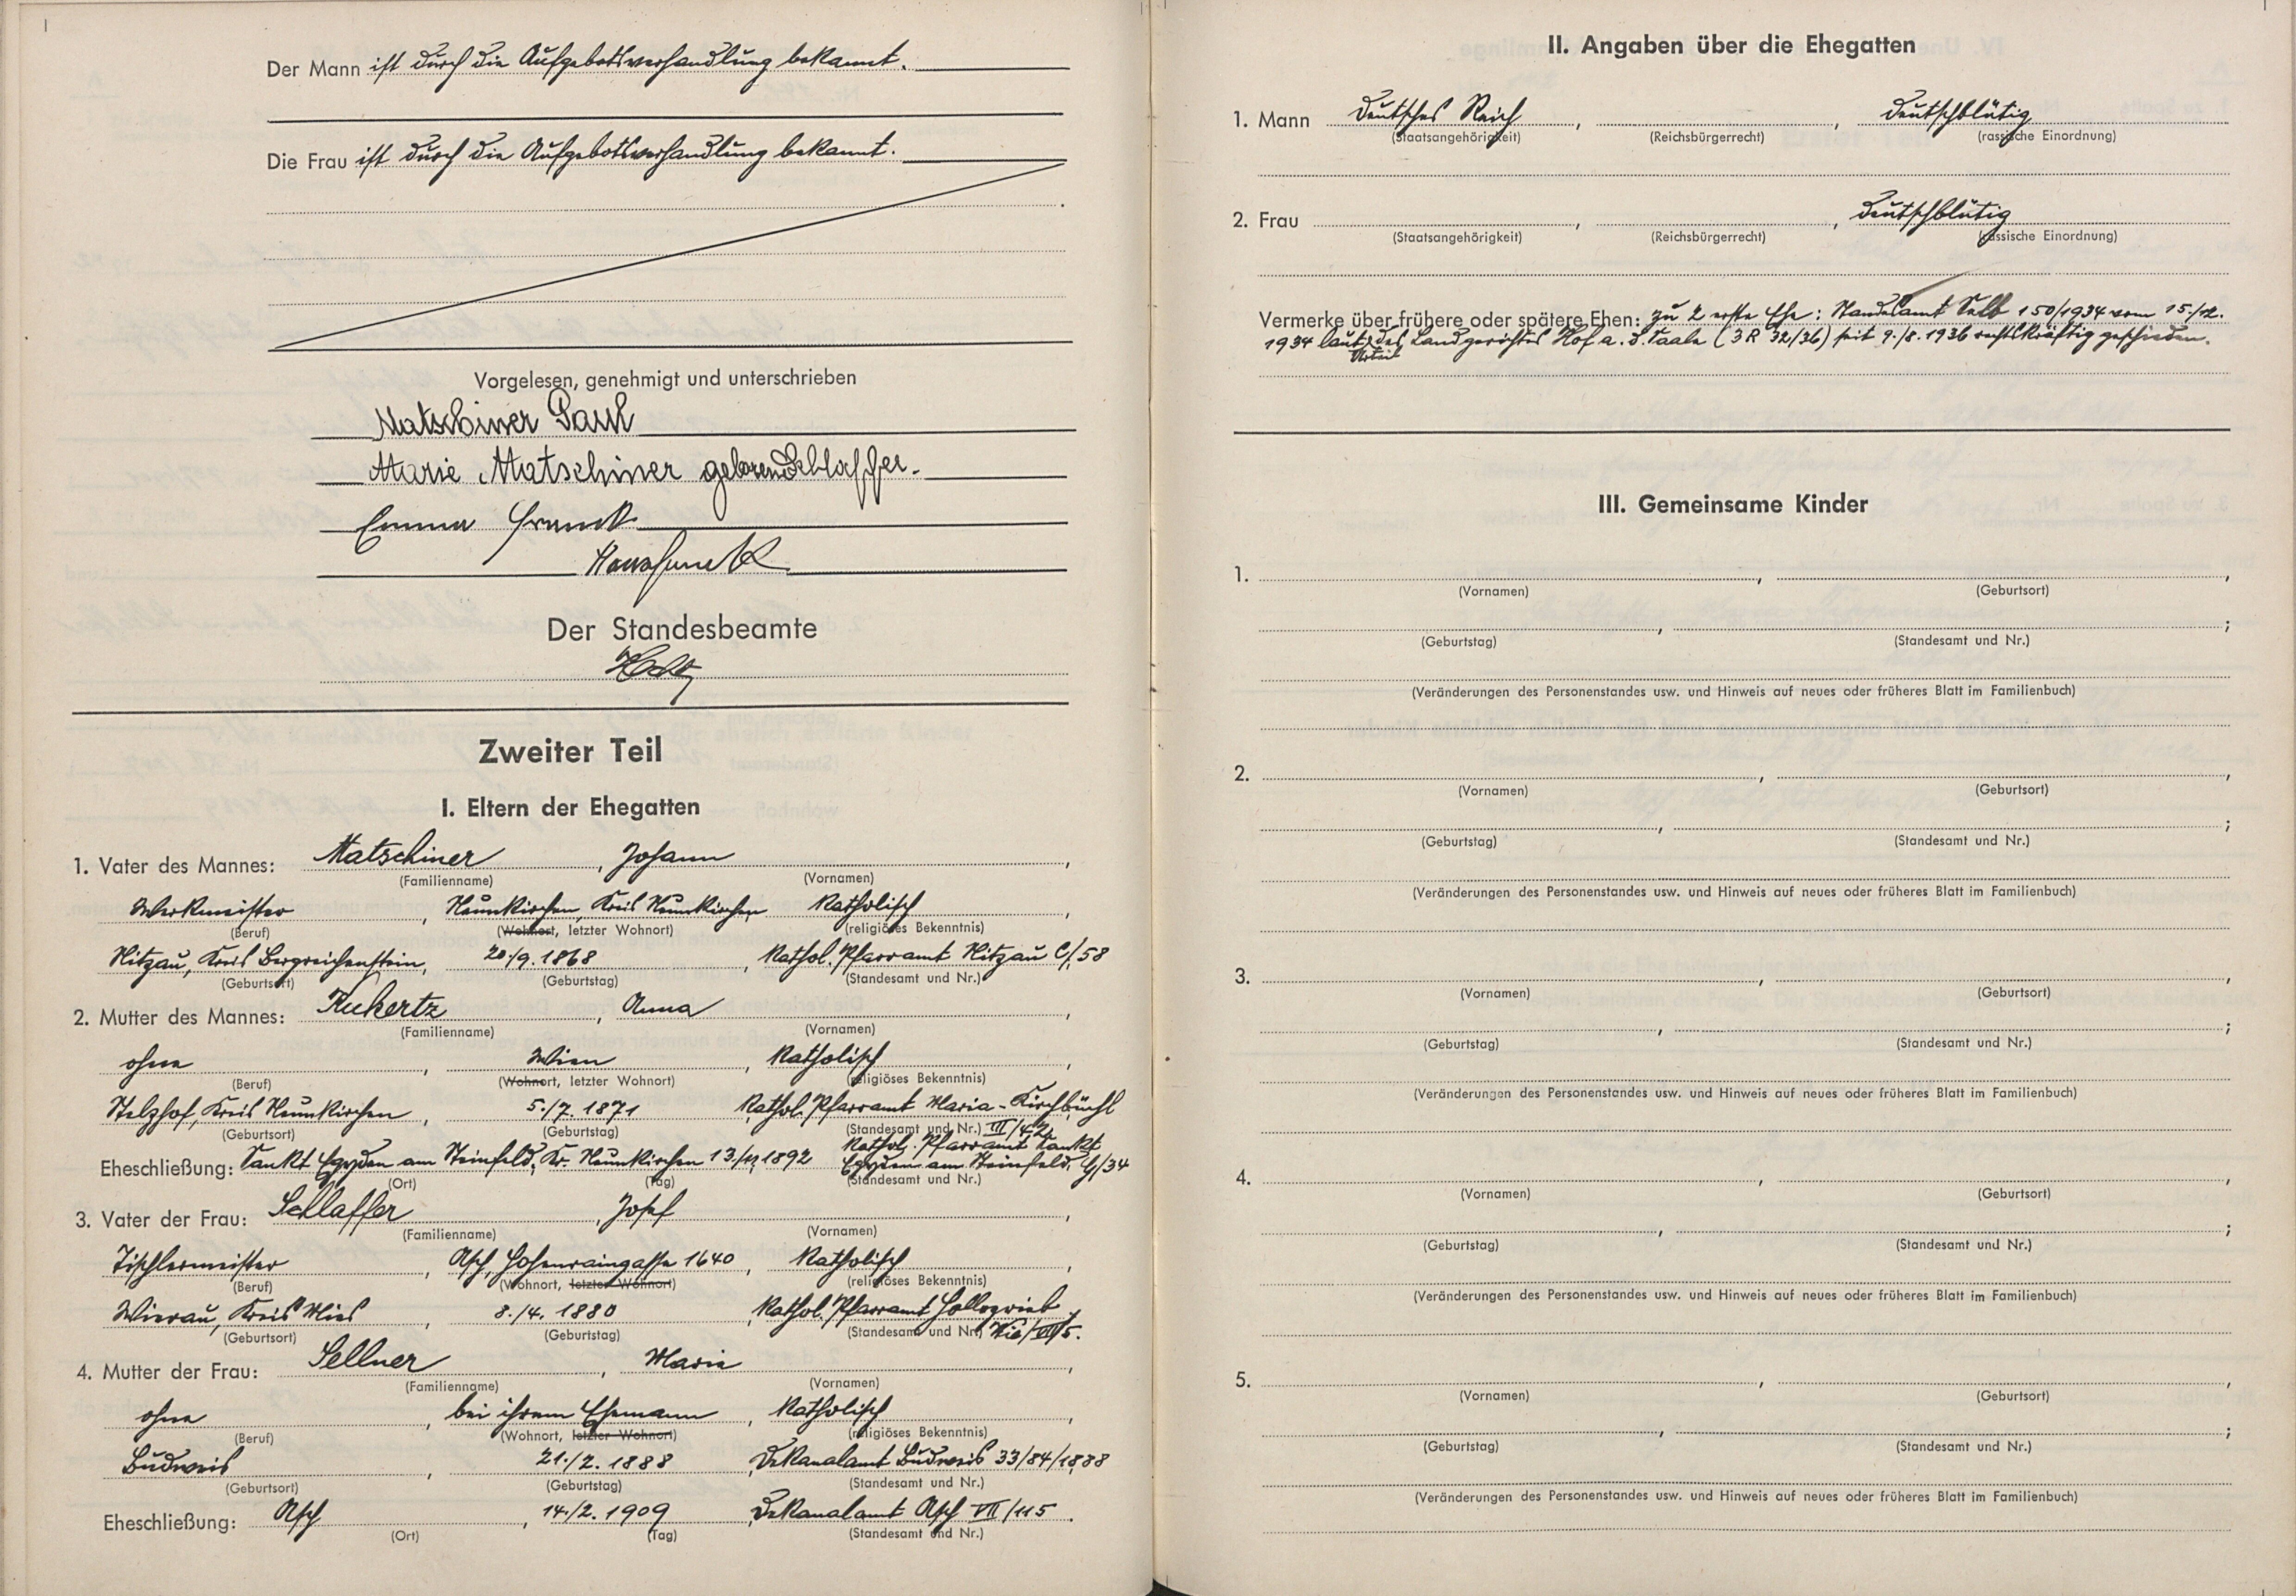 Der Mann ist durch die Aufgebotsverhandlung bekannt.
Die Frau ist durch die Aufgebotsverhandlung bekannt.
Vorgelesen, genehmigt und unterschrieben
Matschiner Paul
Marie Matschiner geborene Schlaffer.
Emma
Der Standesbeamte
Zweiter Teil
I. Eltern der Ehegatten
1. Vater des Mannes: Matschiner, Johann,
(Familienname) (Vornamen)
Werkmeister, Neunkirchen, Kreis Neunkirchen katholisch,
(Beruf) (Wohnort, letzter Wohnort) (religiöses Bekenntnis)
Nitzau, Kreis Bergreichenstein, 20./9. 1868, Kathol. Pfarramt Nitzau C/58
(Geburtsort) (Geburtstag) (Standesamt und Nr.)
2. Mutter des Mannes: Kukertz, Anna,
(Familienname) (Vornamen)
ohne, Wien, katholisch,
(Beruf) (Wohnort, letzter Wohnort) (religiöses Bekenntnis)
Stelzhof, Kreis Neunkirchen, 5./7. 1871, Kathol. Pfarramt Maria-Kirchbüchl
(Geburtsort) (Geburtstag) (Standesamt und Nr.) III/42
Eheschließung: Sankt Egyden am Steinfeld, Kr. Neunkirchen 1892 Kathol. Pfarramt Sankt
Egyden am Steinfeld. G/34
(Ort) (Tag) (Standesamt und Nr.)
3. Vater der Frau: Schlaffer, Josef,
(Familienname) (Vornamen)
Tischlermeister, Asch, Hohenraingasse 1640, katholisch,
(Beruf) (Wohnort, letzter Wohnort) (religiöses Bekenntnis)
Wierau, Kreis Mies, 8./4. 1880, Kathol. Pfarramt
(Geburtsort) (Geburtstag) (Standesamt und Nr.)
4. Mutter der Frau: Sellner, Maria,
(Familienname) (Vornamen)
ohne, bei ihrem Ehemann, katholisch,
(Beruf) (Wohnort, letzter Wohnort) (religiöses Bekenntnis)
Budweis, 21./2. 1888, Dekanalamt Budweis 33/84/1888
(Geburtsort) (Geburtstag) (Standesamt und Nr.)
Eheschließung: Asch, 14./2. 1909, Dekanalamt Asch VII/115.
(Ort) (Tag) (Standesamt und Nr.)
II. Angaben über die Ehegatten
1. Mann Deutsches Reich, , deutschblütig
(Staatsangehörigkeit) (Reichsbürgerrecht) (rassische Einordnung)
2. Frau , , deutschblütig
(Staatsangehörigkeit) (Reichsbürgerrecht) (rassische Einordnung)
Vermerke über frühere oder spätere Ehen: zu 2 erste Ehe: Standesamt Selb 150/1934 vom 15./12.
1934 laut Urteil des Landgerichtes Hof a. d. Saale (3 R 32/36) seit 9./8. 1936 rechtskräftig geschieden.
III. Gemeinsame Kinder
1. , ,
(Vornamen) (Geburtsort)
, ;
(Geburtstag) (Standesamt und Nr.)
(Veränderungen des Personenstandes usw. und Hinweis auf neues oder früheres Blatt im Familienbuch)
2. , ,
(Vornamen) (Geburtsort)
, ;
(Geburtstag) (Standesamt und Nr.)
(Veränderungen des Personenstandes usw. und Hinweis auf neues oder früheres Blatt im Familienbuch)
3. , ,
(Vornamen) (Geburtsort)
, ;
(Geburtstag) (Standesamt und Nr.)
(Veränderungen des Personenstandes usw. und Hinweis auf neues oder früheres Blatt im Familienbuch)
4. , ,
(Vornamen) (Geburtsort)
, ;
(Geburtstag) (Standesamt und Nr.)
(Veränderungen des Personenstandes usw. und Hinweis auf neues oder früheres Blatt im Familienbuch)
5. , ,
(Vornamen) (Geburtsort)
, ;
(Geburtstag) (Standesamt und Nr.)
(Veränderungen des Personenstandes usw. und Hinweis auf neues oder früheres Blatt im Familienbuch)